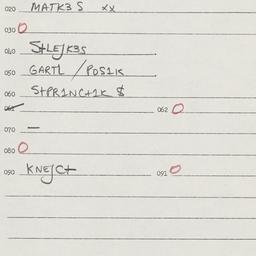 020 MATK3 S xx
030 O
040 S+LEJK3S
050 GARTL / POS1K
060 S+PR1NC+1K $
061 062 O
070 —
080 O
090 KNEJC+ 091 O